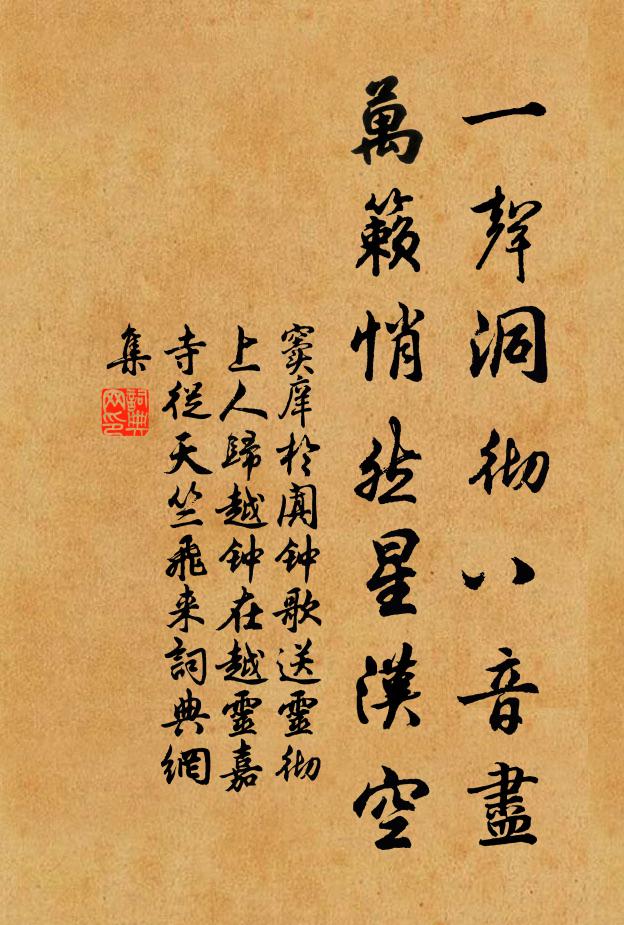 一聲洞彻八音盡
萬籟悄然星漢空
窦庠於聞钟歌送靈彻
上人歸越钟在越靈嘉
寺從天竺飛来詞典網
集
詞典
网印